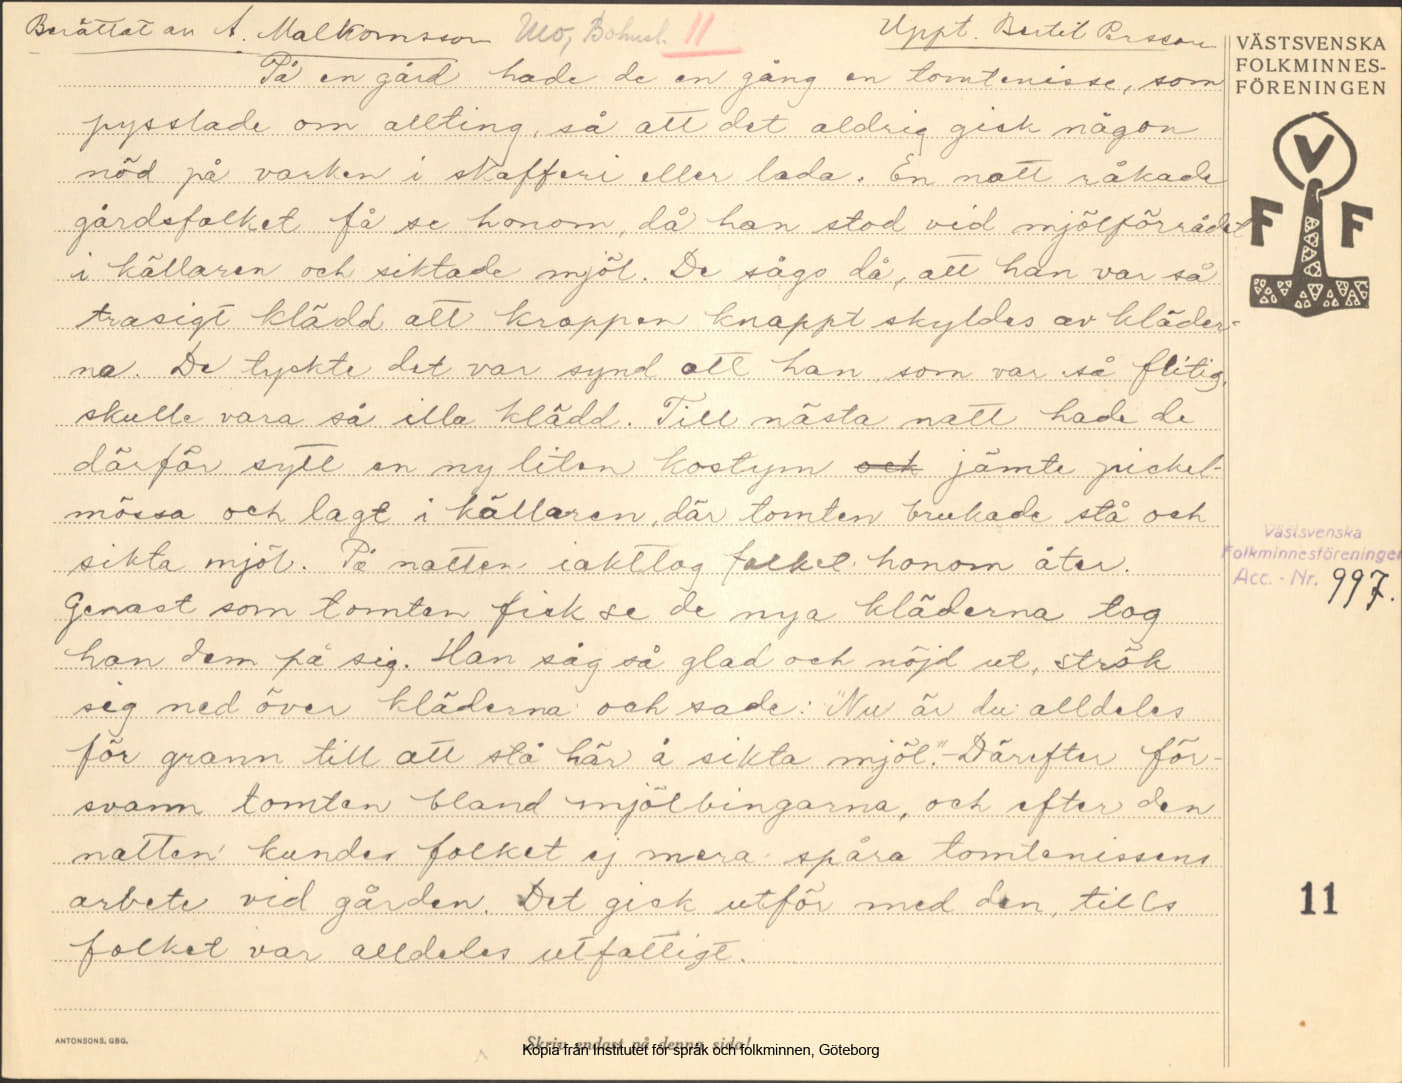 Berättat av A. Malkomsson Mo, Bohusl. 11 Uppt. Bertil Persson
VÄSTSVENSKA
FOLKMINNES-
FÖRENINGEN
V
F F
På en gård hade de en gång en tomtenisse, som
pysslade om allting, så att det aldrig gick någon
nöd på varken i skafferi eller lada. En natt råkade
gårdsfolket få se honom, då han stod vid mjölförrådet
i källaren och siktade mjöl. De sågo då, att han var så
trasigt klädd att kroppen knappt skyldes av kläder-
na. De tyckte det var synd att han, som var så flitig,
skulle vara så illa klädd. Till nästa natt hade de
därför sytt en ny liten kostym och jämte pickel-
mössa och lagt i källaren, där tomten brukade stå och
sikta mjöl. På natten iakttog folket honom åter.
Genast som tomten fick se de nya kläderna tog
han dem på sig. Han såg så glad och nöjd ut, strök
sig ned över kläderna och sade: "Nu är du alldeles
för grann till att stå här å sikta mjöl." - Därefter för-
svann tomten bland mjölbingarna, och efter den
natten kundes folket ej mera spåra tomtenissens
arbete vid gården. Det gick utför med den, tills
folket var alldeles utfattigt.
Västsvenska
Folkminnesföreningen
Acc. - Nr. 997.
11
ANTONSONS, GBG.
Skriv endast på denna sida!
Kopia från Institutet för språk och folkminnen, Göteborg